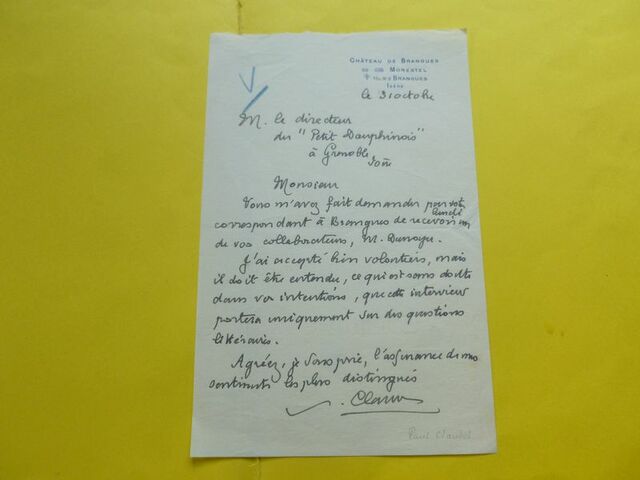 CHÂTEAU DE BRANGUES
MORESTEL
BRANGUES
ISÈRE
le 31 octobre
M. le directeur
du "Petit Dauphinois"
à Grenoble
Monsieur
Vous m'avez fait demander par votre
correspondant à Brangues de recevoir lundi un
de vos collaborateurs, M.
J'ai accepté bien volontiers, mais
il doit être entendu, ce qui est sans doute
dans vos intentions, que cette interview
portera uniquement sur des questions
littéraires.
Agréez, je vous prie, l'assurance de mes
sentiments les plus distingués
Paul Claudel